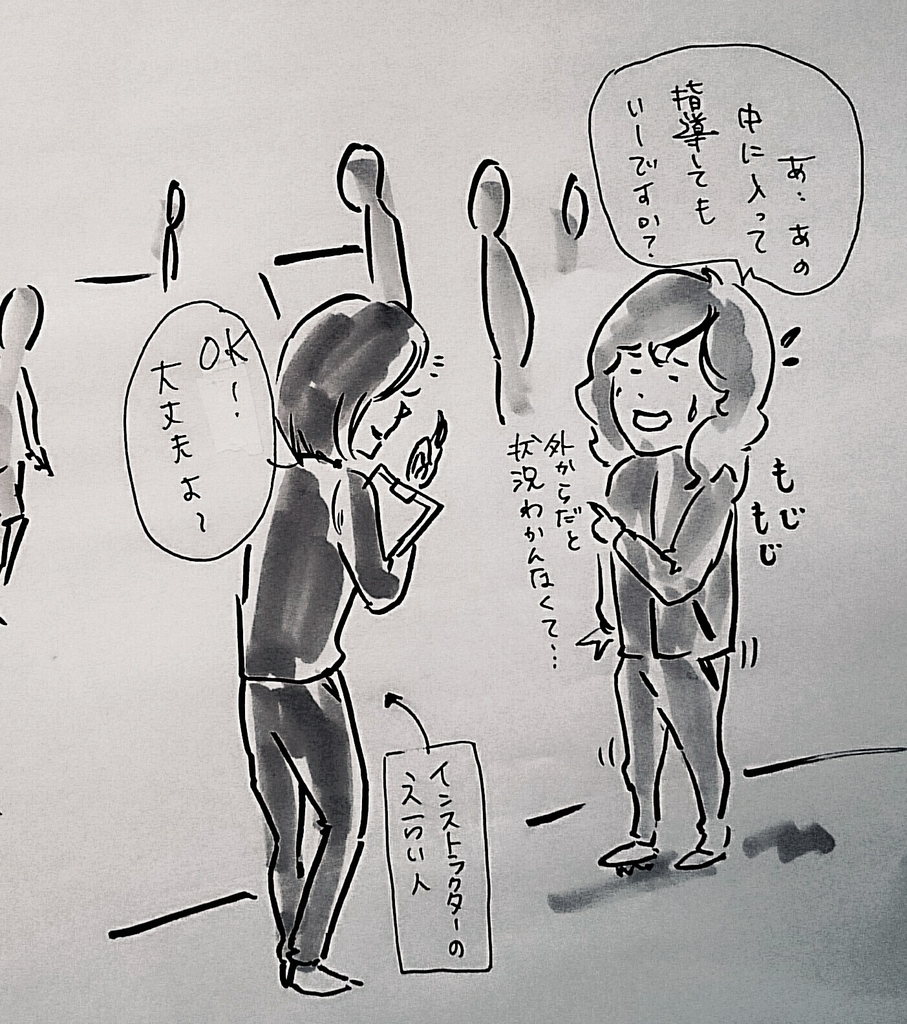 あ…あの
中に入って
指導しても
いーですか?
もじ
もじ
外からだと
状況わかんなくて…
OK!
大丈夫よ~
インストラクターの
えらい人